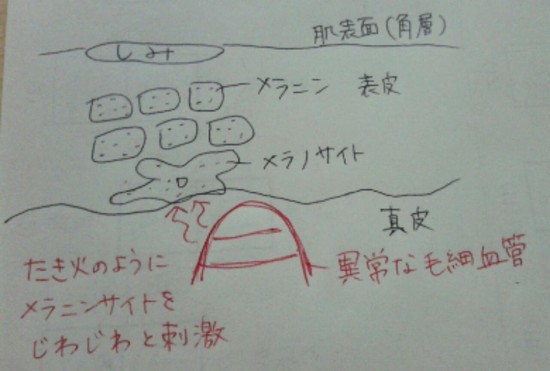 肌表面(角層)
しみ
メラニン 表皮
メラノサイト
真皮
異常な毛細血管
たき火のように
メラニンサイトを
じわじわと刺激